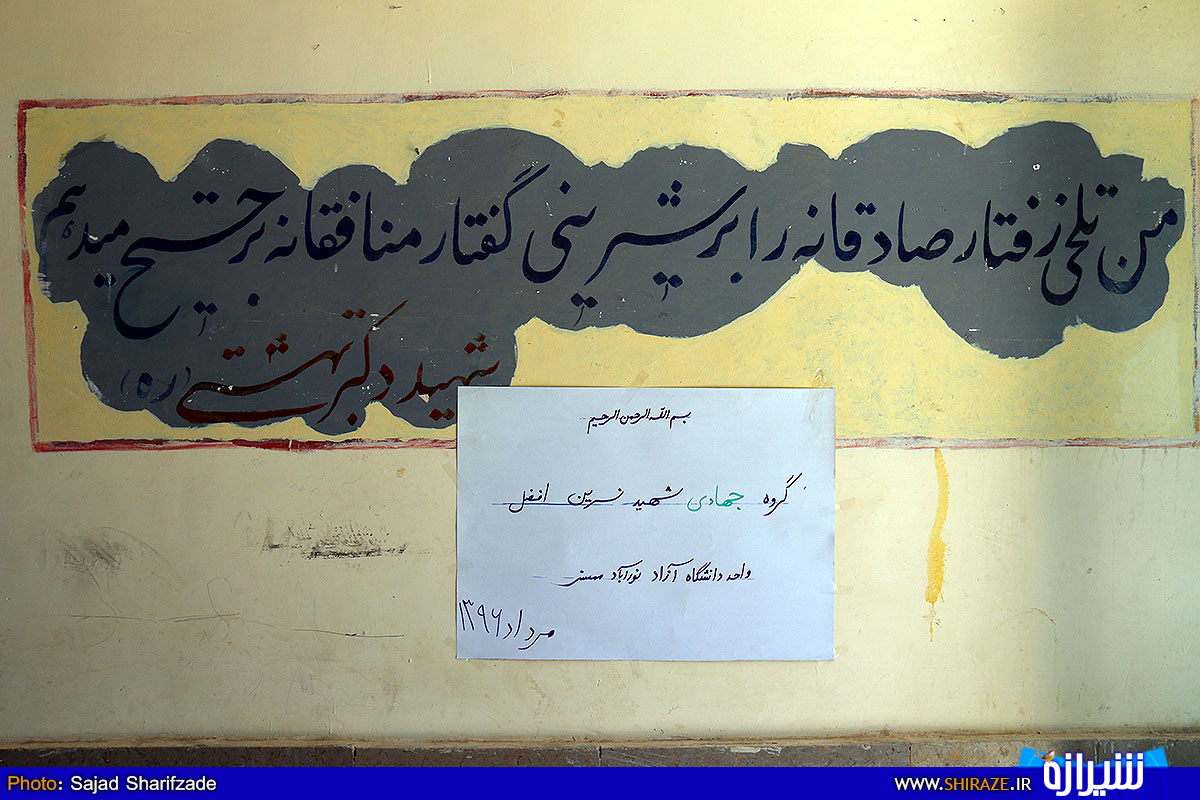 من تلخی رفتار صادقانه را بر شیرینی گفتار منافقانه ترجیح میدهم
شهید دکتر بهشتی (ره)
بسم الله الرحمن الرحیم
گروه جهادی شهید نسرین افضل
واحد دانشگاه آزاد نورآباد ممسنی
مرداد ۱۳۹۶
Photo: Sajad Sharifzade
WWW.SHIRAZE.IR
شیرازه